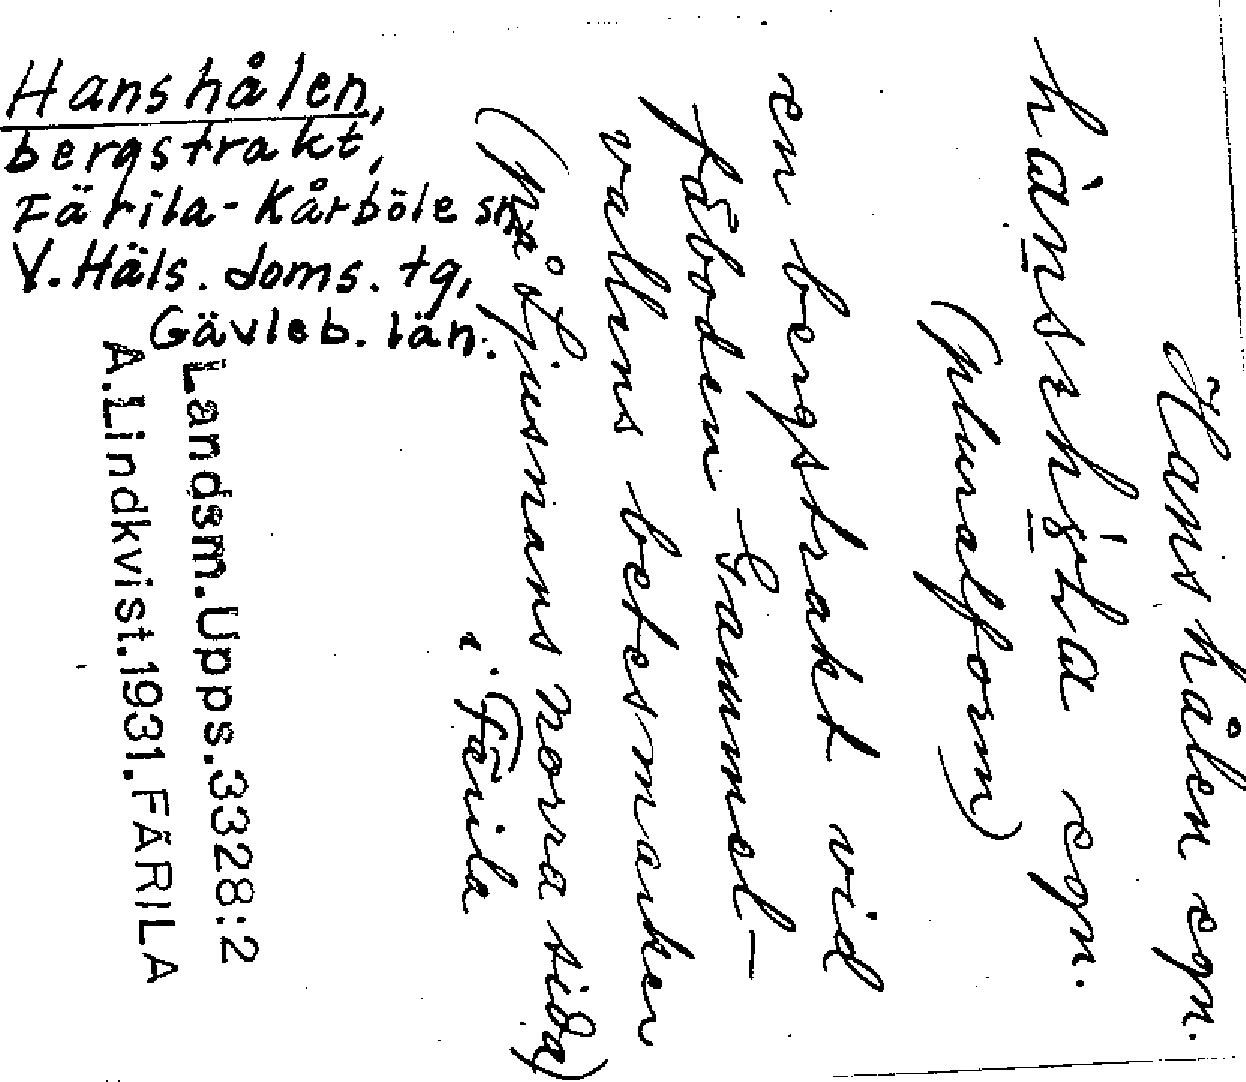 Hanshålen,
bergstrakt,
Färila-Kårböle sn,
V. Häls. doms. tg,
Gävleb. län.
Hanshålen egn.
egn.
(pluralform)
en bergstrakt vid
fäboden Gammel-
vallens betesmarken
(på Ljusnans norra sida)
i Färila
Landsm.Upps.3328:2
A.Lindkvist.1931.FÄRILA